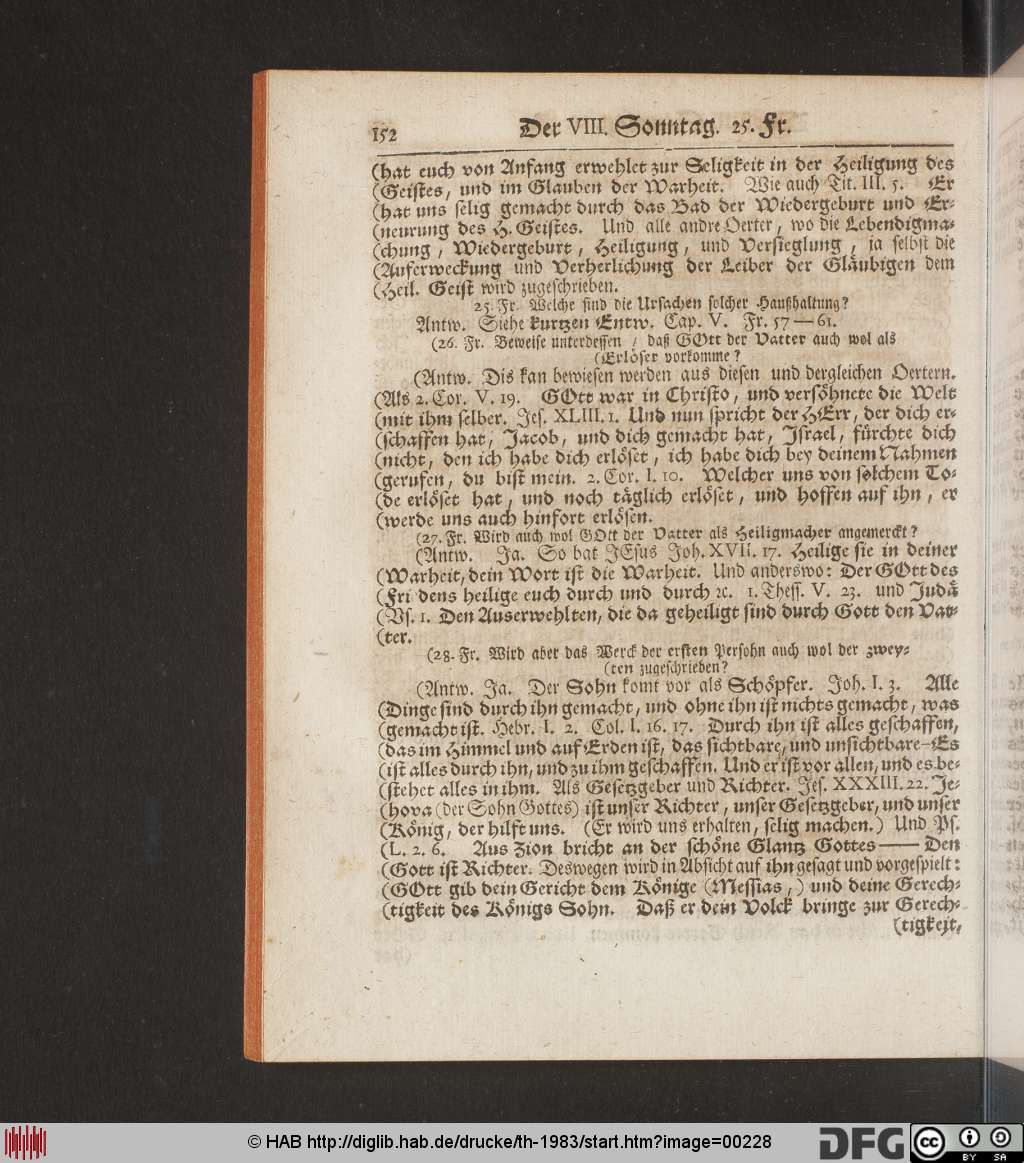 152 Der VIII. Sonntag. 25. Fr.
(hat euch von Anfang erwehlet zur Seligkeit in der Heiligung des
(Geistes, und im Glauben der Warheit. Wie auch Tit. III. 5. Er
(hat uns selig gemacht durch das Bad der Wiedergeburt und Er-
(neurung des H. Geistes. Und alle andre Oerter, wo die Lebendigma-
(chung, Wiedergeburt, Heiligung, und Versieglung, ja selbst die
(Auferweckung und Verherlichung der Leiber der Gläubigen dem
(Heil. Geist wird zugeschrieben.
25. Fr. Welche sind die Ursachen solcher Haußhaltung?
Antw. Siehe kurtzen Entw. Cap. V. Fr. 57—61.
(26. Fr. Beweise unterdessen / daß GOtt der Vatter auch wol als
(Erlöser vorkomme?
(Antw. Dis kan bewiesen werden aus diesen und dergleichen Oertern.
(Als 2. Cor. V. 19. GOtt war in Christo, und versöhnete die Welt
(mit ihm selber. Jes. XLIII. 1. Und nun spricht der HErr, der dich er-
(schaffen hat, Jacob, und dich gemacht hat, Israel, fürchte dich
(nicht, den ich habe dich erlöset, ich habe dich bey deinem Nahmen
(gerufen, du bist mein. 2. Cor. I. 10. Welcher uns von solchem To-
(de erlöset hat, und noch täglich erlöset, und hoffen auf ihn, er
(werde uns auch hinfort erlösen.
(27. Fr. Wird auch wol GOtt der Vatter als Heiligmacher angemerckt?
(Antw. Ja. So bat JEsus Joh. XVII. 17. Heilige sie in deiner
(Warheit, dein Wort ist die Warheit. Und anderswo: Der GOtt des
(Fri dens heilige euch durch und durch ꝛc. 1. Thess. V. 23. und Judä
(Vs. 1. Den Auserwehlten, die da geheiligt sind durch Gott den Vat-
(ter.
(28. Fr. Wird aber das Werck der ersten Persohn auch wol der zwey-
(ten zugeschrieben?
(Antw. Ja. Der Sohn komt vor als Schöpfer. Joh. I. 3. Alle
(Dinge sind durch ihn gemacht, und ohne ihn ist nichts gemacht, was
(gemacht ist. Hebr. I. 2. Col. I. 16. 17. Durch ihn ist alles geschaffen,
(das im Himmel und auf Erden ist, das sichtbare, und unsichtbare-Es
(ist alles durch ihn, und zu ihm geschaffen. Und er ist vor allen, und es be-
(stehet alles in ihm. Als Gesetzgeber und Richter. Jes. XXXIII. 22. Je-
(hova (der Sohn Gottes) ist unser Richter, unser Gesetzgeber, und unser
(König, der hilft uns. (Er wird uns erhalten, selig machen.) Und Ps.
(L. 2. 6. Aus Zion bricht an der schöne Glantz Gottes—— Den
(Gott ist Richter. Deswegen wird in Absicht auf ihn gesagt und vorgespielt:
(GOtt gib dein Gericht dem Könige (Messias,) und deine Gerech-
(tigkeit des Königs Sohn. Daß er dein Volck bringe zur Gerech-
(tigkeit,
© HAB http://diglib.hab.de/drucke/th-1983/start.htm?image=00228
DFG
cc BY SA